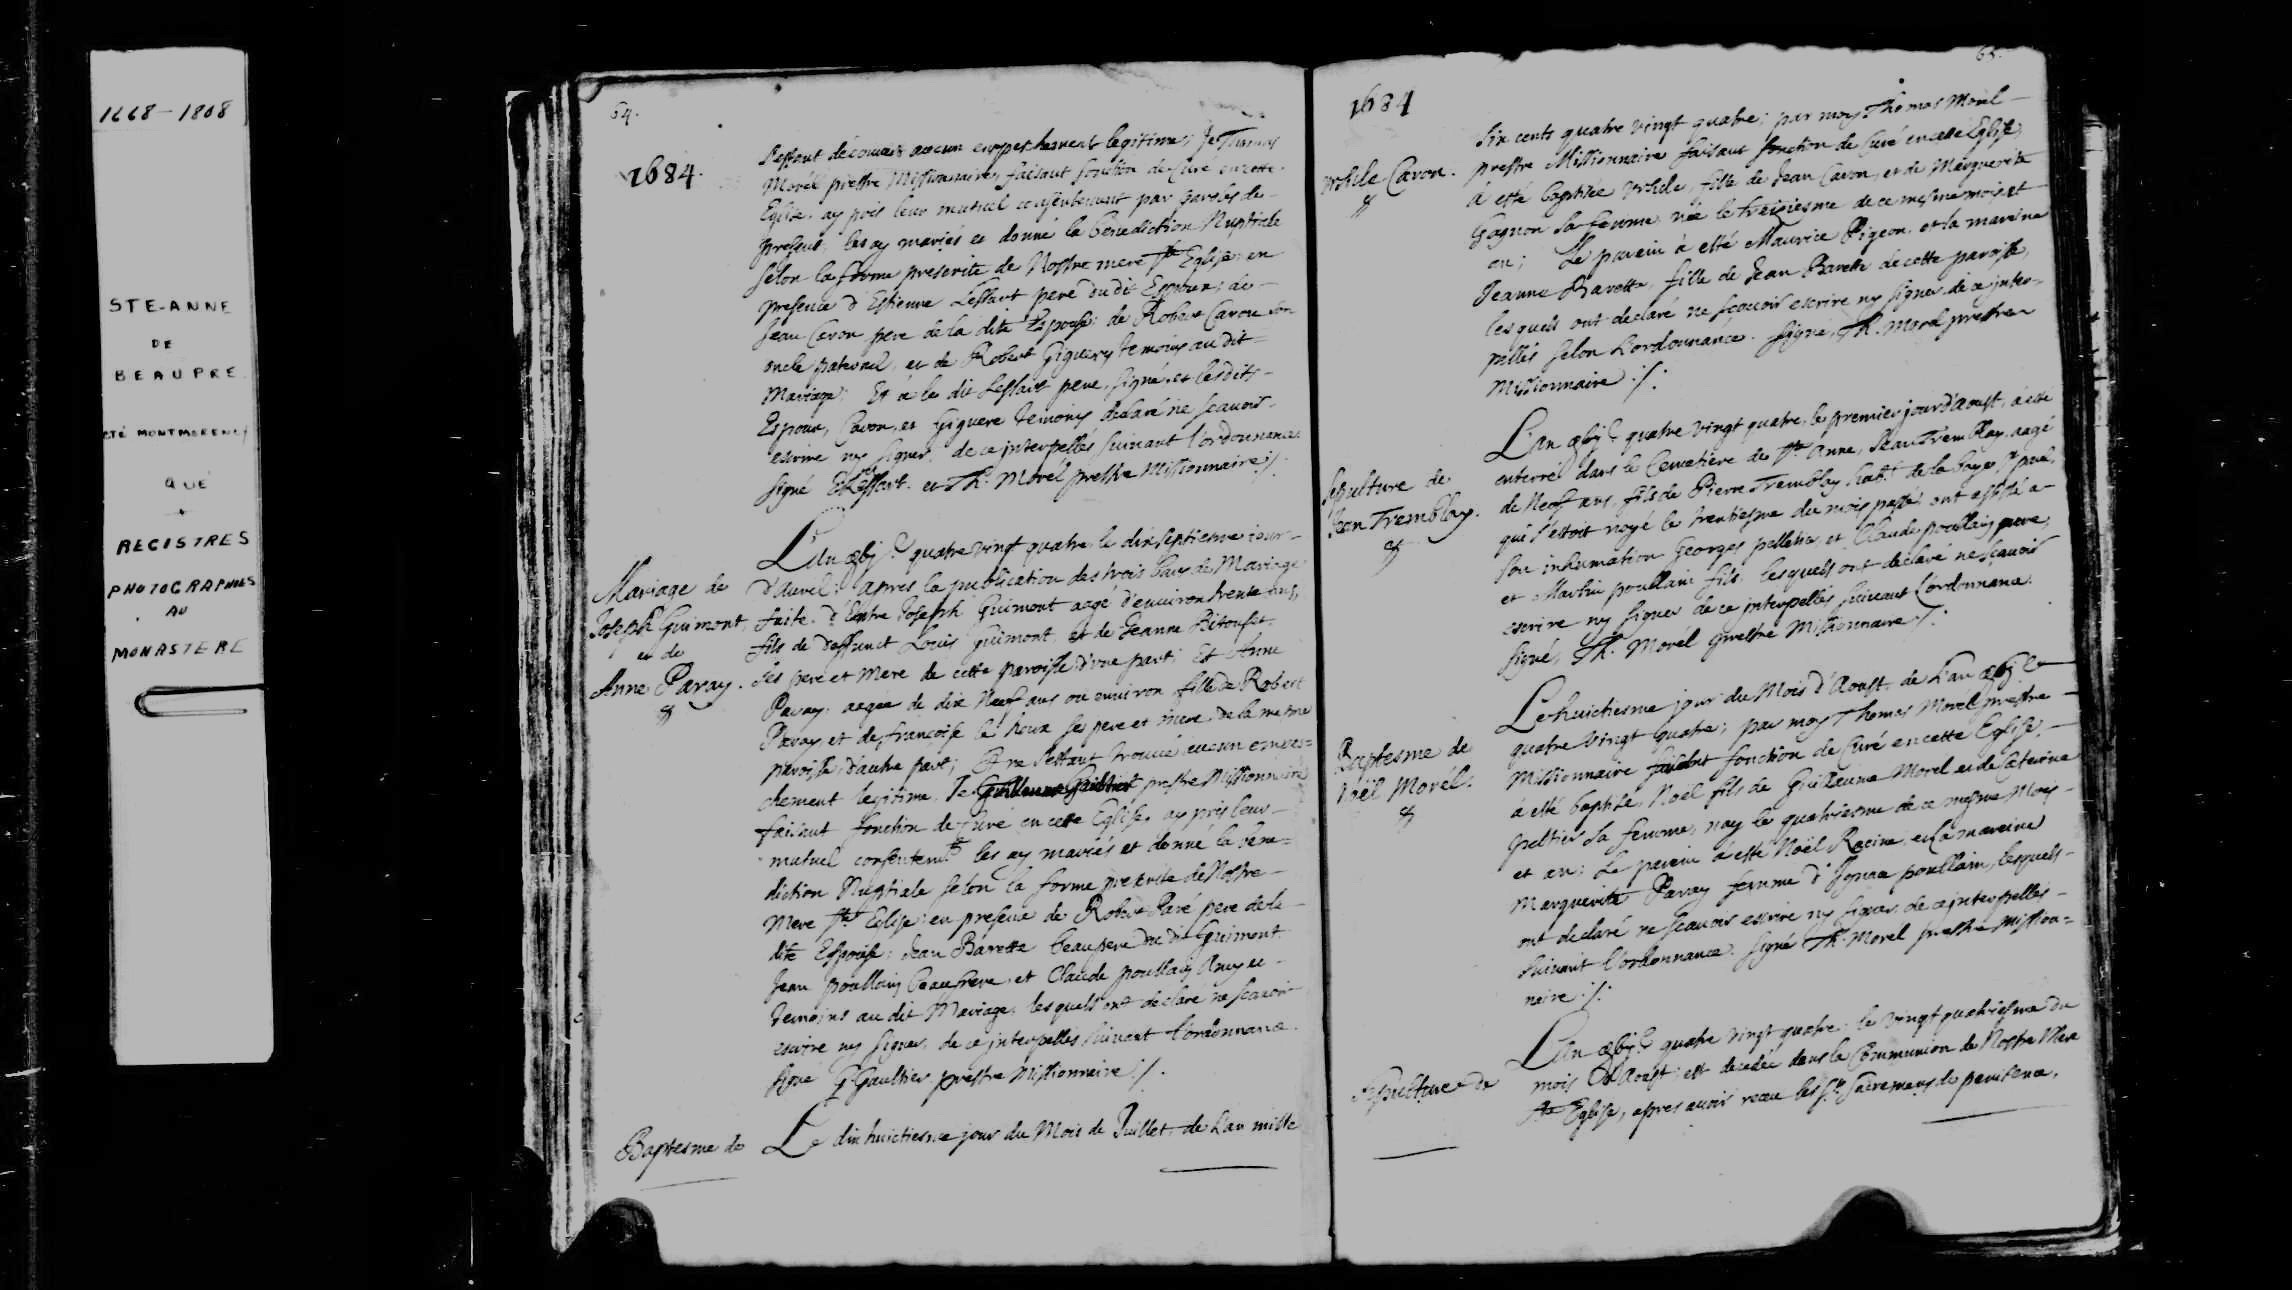 1668-1808
STE-ANNE
DE
BEAUPRE
CTÉ MONTMORENCY
QUÉ
REGISTRES
PHOTOGRAPHIÉS
AU
MONASTERE
64.
1684.
s'estant découvert aucun empeschement legitime; Je Thomas
Morél prestre Missionnaire, faisant fonction de Curé en cette
Eglise, ay pris leur mutuel consentement par paroles de
present, les ay mariés et donné la benediction Nuptiale
selon la forme prescrite de Nostre mere Ste Eglise: en
presence d'Estienne Lessart pere du dit Espoux: de
Jean Caron pere de la dite Espouse: de Robert Caron son
oncle paternel, et de Robert Giguere temoins au dit
Mariage: Et a le dit Lessart pere, signé, et lesdits
Espoux, Caron, et Giguere temoins declaré ne scavoir
escrire ny signer, de ce interpellés, suivant l'ordonnance.
signé E Lessart. et Th. Morél prestre Missionnaire ./.
Mariage de
Joseph Guimont,
et de
Anne Paray.
L'an gbjc quatre vingt quatre le dix septiesme jour
d'Avril: apres la publication des trois bans de Mariage
faite. d'Entre Joseph Guimont aagé d'environ trente ans,
fils de deffunct Louis Guimont, et de Jeanne Bitouset
ses pere et mere de cette paroisse d'une part; Et Anne
Paray, aagée de dix Neuf ans ou environ fille de Robert
Paray et de francoise le houx ses pere et mere de la mesme
paroisse d'autre part; Et ne s'estant trouvé aucun empes=
chement legitime, Je Guillaume Gaultier prestre Missionnaire
faisant fonction de Curé en cette Eglise, ay pris leur
mutuel consentemt les ay mariés et donné la bene=
diction Nuptiale selon la forme prescrite de Nostre
Mere Ste Eglise: en presence de Robert Paré pere de la
dite Espouse; Jean Barette beaupere du dit Guimont
Jean poullain beaufrere, et Claude poullain Amy et
temoins au dit Mariage, lesquels ont declaré ne scavoir
escrire ny signer, de ce interpellés suivant l'ordonnance.
signé G Gaultier prestre Missionnaire ./.
Baptesme de
Le dix huictiesme jour du Mois de Juillet, de L'an mille
65.
1684
Vrsule Caron.
six cents quatre vingt quatre; par moy Thomas Morel
prestre Missionnaire faisant fonction de Curé en cette Eglise,
à esté baptisée Vrsule, fille de Jean Caron, et de Marguerite
Gagnon sa femme, née le treiziesme de ce mesme mois et
an; Le parein à esté Maurice Pigeon, et la mareine
Jeanne Barette, fille de Jean Barette de cette paroisse,
lesquels ont declaré ne scavoir escrire ny signer de ce inter=
pellés selon L'ordonnance. signé, Th. Morel prestre
Missionnaire ./.
Sepulture de
Jean Tremblay.
L'an gbjc quatre vingt quatre, le premier jour d'Aoust, à esté
enterré dans le Cemetiere de Ste Anne, Jean Tremblay, aagé
de Neuf ans, fils de Pierre Tremblay habt. de la baye St paul,
qui s'estoit noyé le trentiesme du mois passé, ont assisté a
son inhumation Georges pelletier, et Claude poullain pere,
et Martin poullain fils, lesquels ont declaré ne scavoir
escrire ny signer de ce interpellés suivant L'ordonnance.
signé, Th. Morél prestre Missionnaire ./.
Baptesme de
Noël Morél.
Le huictiesme jour du Mois d'Aoust, de L'an gbjc
quatre vingt quatre; par moy Thomas Morél prestre
Missionnaire faisant fonction de Curé en cette Eglise,
à esté baptisé, Noël fils de Guillaume Morel et de Caterine
peltier sa femme, nay le quatriesme de ce mesme Mois
et an; Le parein à esté Noël Racine, et la mareine
Marguerite Paray femme d'Ignace poullain, lesquels
ont declaré ne scavoir escrire ny signer de ce interpellés
suivant l'ordonnance. signé Th. Morel prestre Mission=
naire ./.
Sepulture de
L'an gbjc quatre vingt quatre: le vingt quatriesme du
mois D'Aoust: est decedée dans la Communion de Nostre Mere
Ste Eglise, apres avoir receu les Sts Sacremens de penitence,